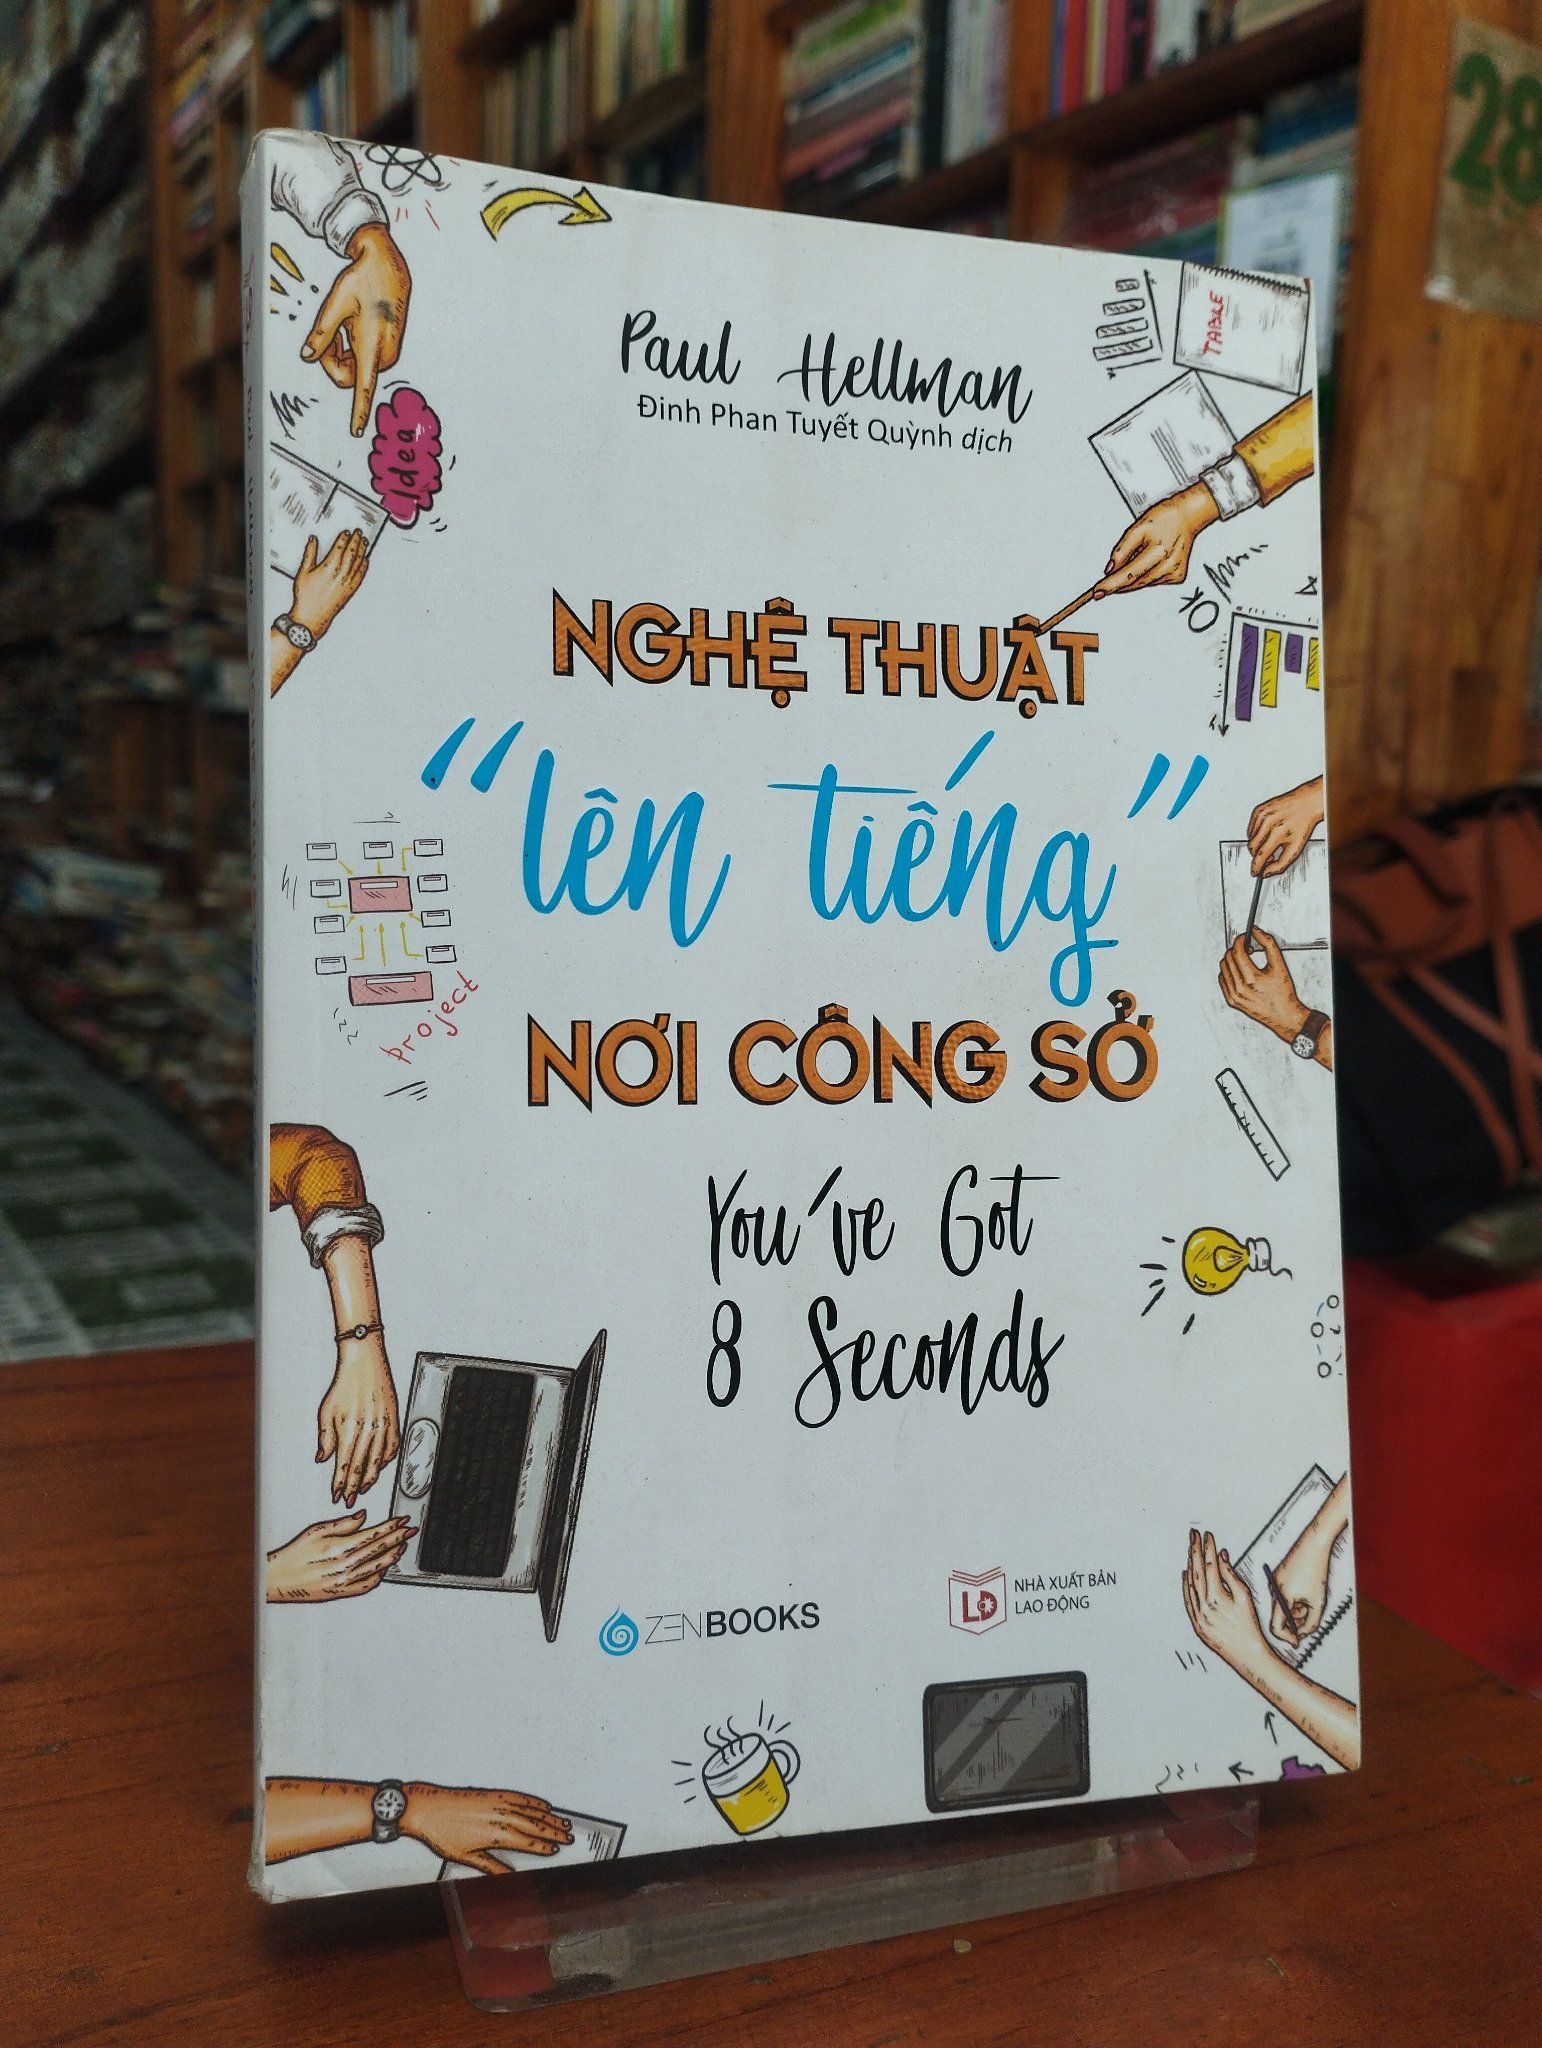 Paul Hellman
Đinh Phan Tuyết Quỳnh dịch
TABLE
Idea
NGHỆ THUẬT
OK
“lên tiếng”
project
NƠI CÔNG SỞ
You´ve Got
8 Seconds
ZENBOOKS
LĐ
NHÀ XUẤT BẢN
LAO ĐỘNG
28